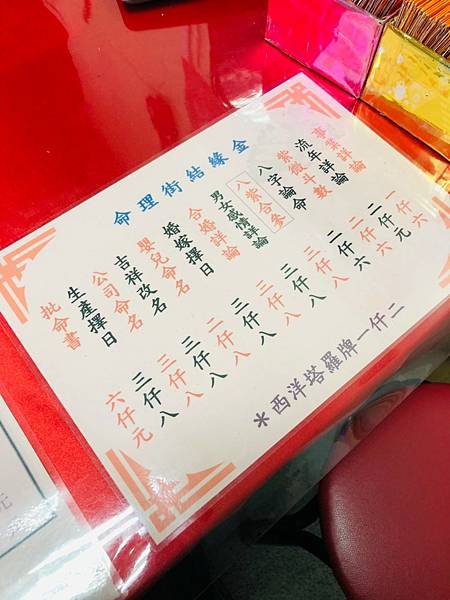 命理街結緣金
事業詳論 一仟六
流年詳論 二仟元
紫微斗數 二仟六
八字論命 二仟六
八紫合參 三仟八
男女感情詳論 三仟八
合婚詳論 三仟八
婚嫁擇日 三仟八
嬰兒命名 二仟八
吉祥改名 三仟八
公司命名 三仟八
生產擇日 三仟八
批命書 六仟元
*西洋塔羅牌一仟二
元